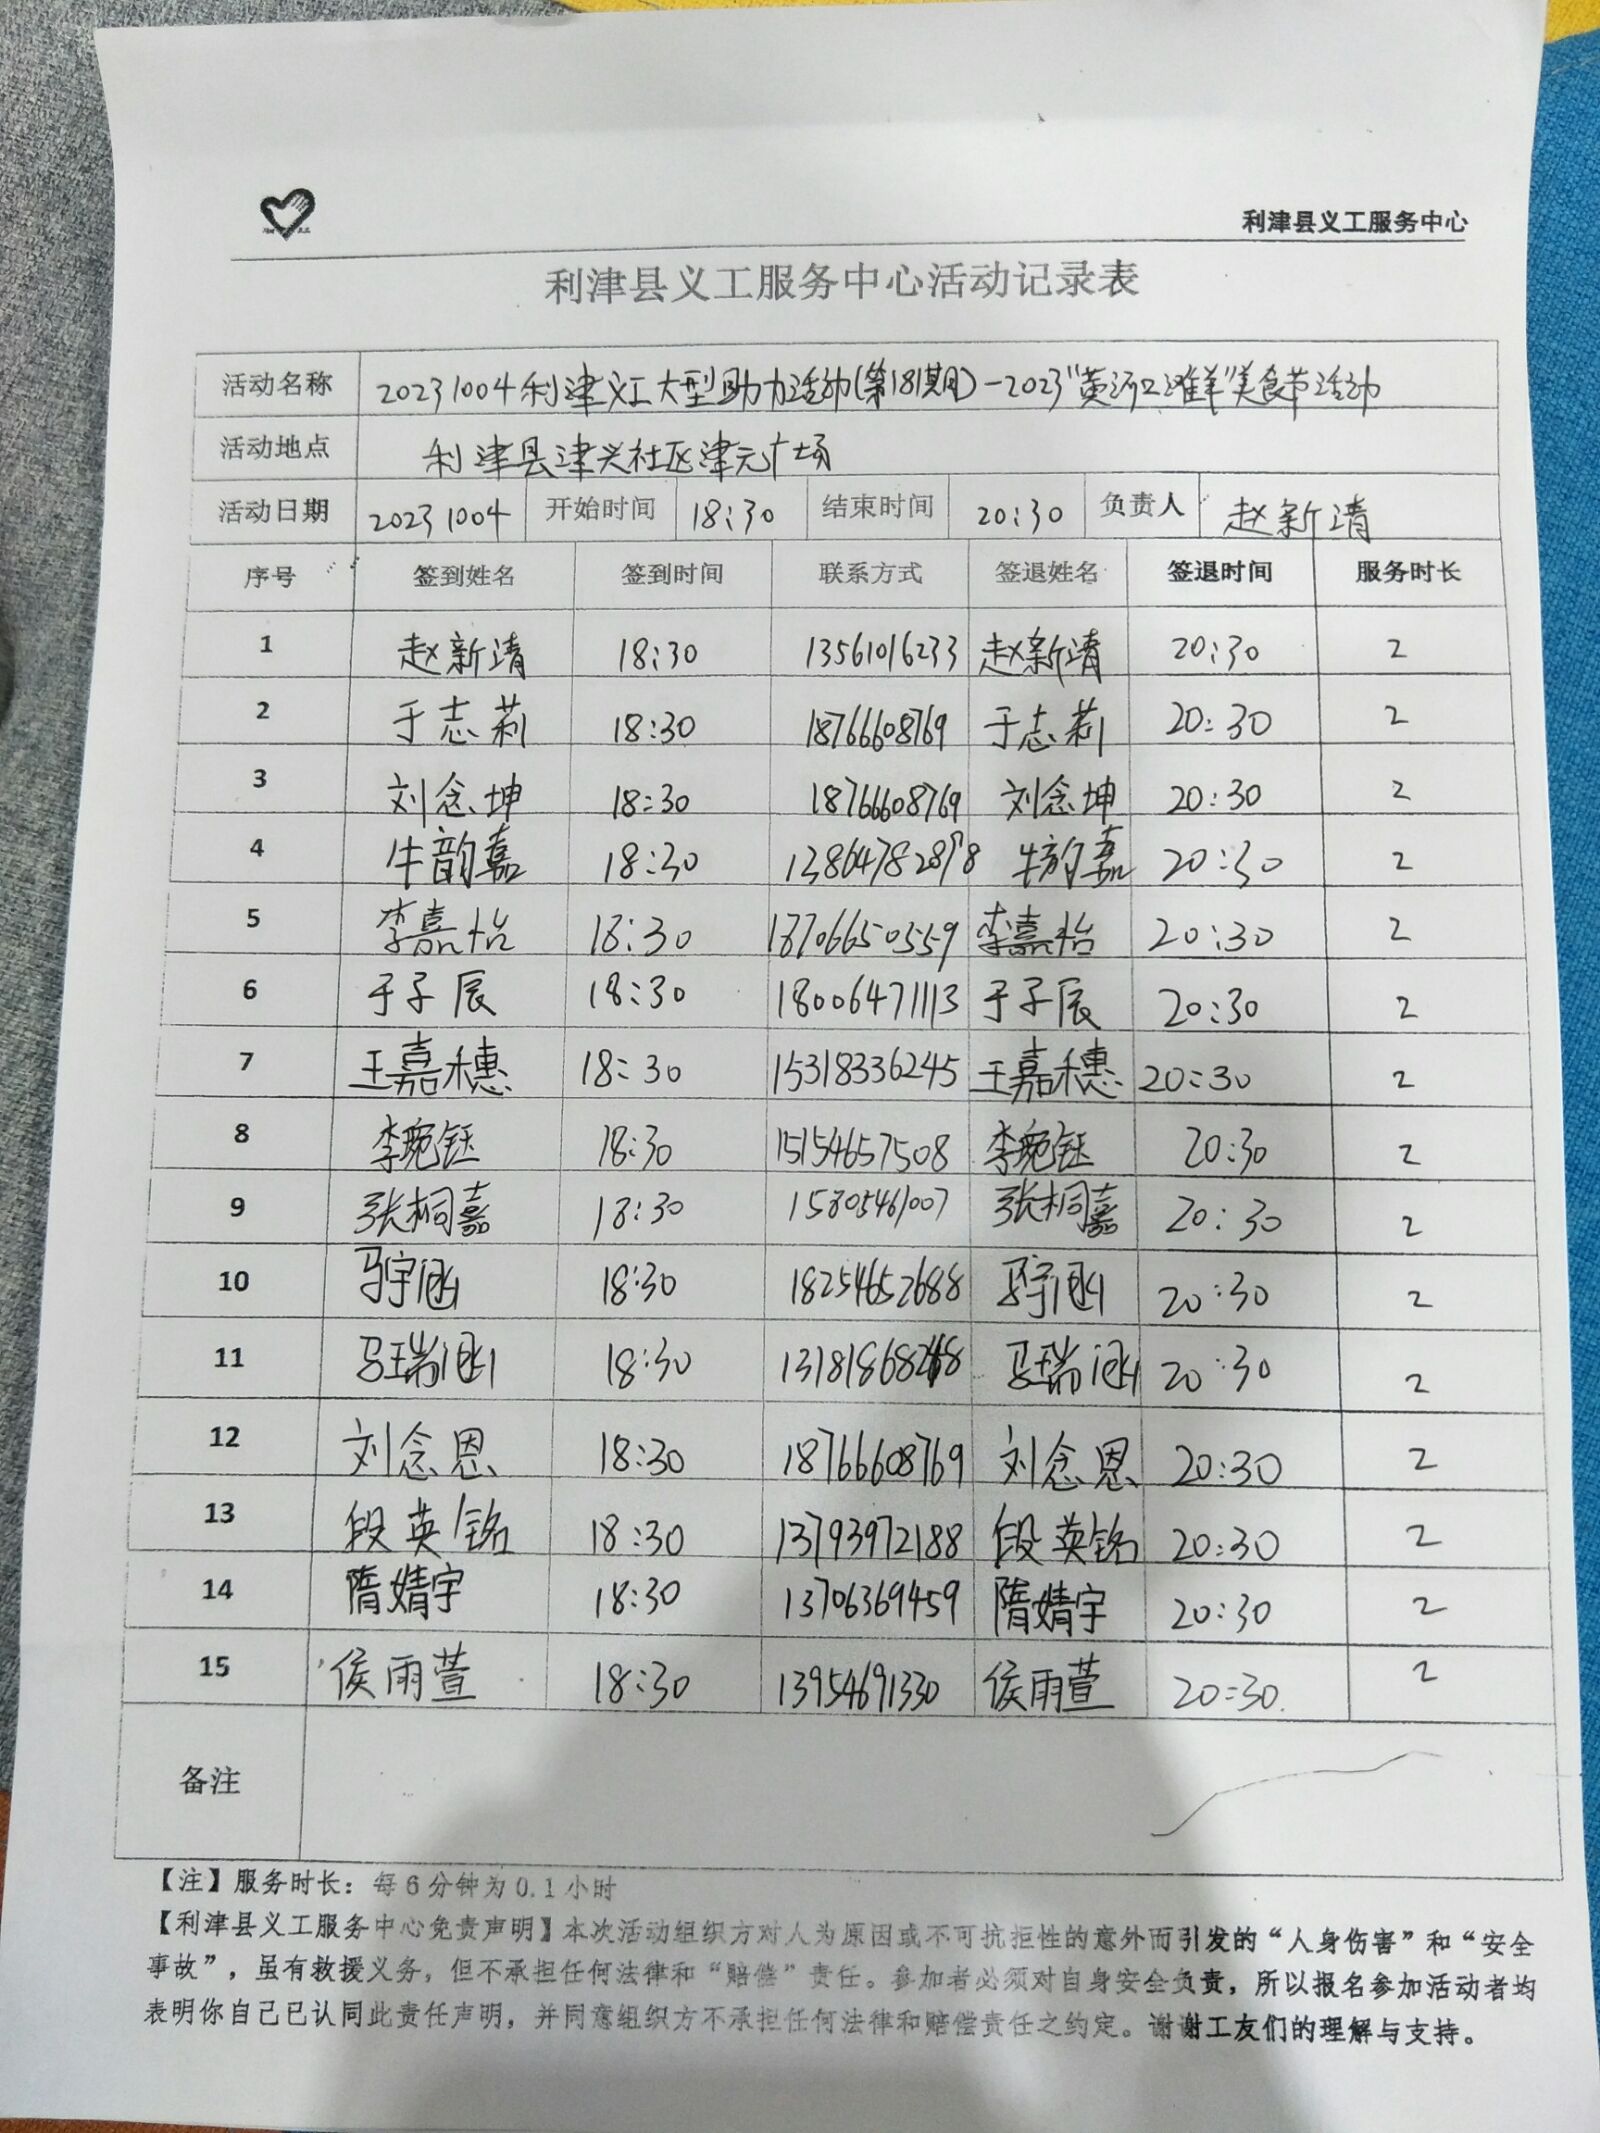 利津县义工服务中心
利津县义工服务中心活动记录表
活动名称 20231004利津义工大型助力活动(第181期)-2023"黄河口滩羊"美食节活动
活动地点 利津县津兴社区津元广场
活动日期 20231004 开始时间 18:30 结束时间 20:30 负责人 赵新靖
序号 签到姓名 签到时间 联系方式 签退姓名 签退时间 服务时长
1 赵新靖 18:30 13561016233 赵新靖 20:30 2
2 于志莉 18:30 18766608769 于志莉 20:30 2
3 刘念坤 18:30 18766608769 刘念坤 20:30 2
4 牛韵嘉 18:30 13864782878 牛韵嘉 20:30 2
5 李嘉怡 18:30 18706650559 李嘉怡 20:30 2
6 于子辰 18:30 18006471113 于子辰 20:30 2
7 王嘉穗 18:30 15318336245 王嘉穗 20:30 2
8 李琬钰 18:30 15154657508 李琬钰 20:30 2
9 张桐嘉 18:30 15805461007 张桐嘉 20:30 2
10 马宇涵 18:30 18254652688 马宇涵 20:30 2
11 马瑞涵 18:30 马瑞涵 20:30 2
12 刘念恩 18:30 18766608769 刘念恩 20:30 2
13 段英铭 18:30 13793972188 段英铭 20:30 2
14 隋婧宇 18:30 13706369459 隋婧宇 20:30 2
15 侯雨萱 18:30 13954691330 侯雨萱 20:30 2
备注
【注】服务时长：每6分钟为0.1小时
【利津县义工服务中心免责声明】本次活动组织方对人为原因或不可抗拒性的意外而引发的“人身伤害”和“安全
事故”，虽有救援义务，但不承担任何法律和“赔偿”责任。参加者必须对自身安全负责，所以报名参加活动者均
表明你自己已认同此责任声明，并同意组织方不承担任何法律和赔偿责任之约定。谢谢工友们的理解与支持。